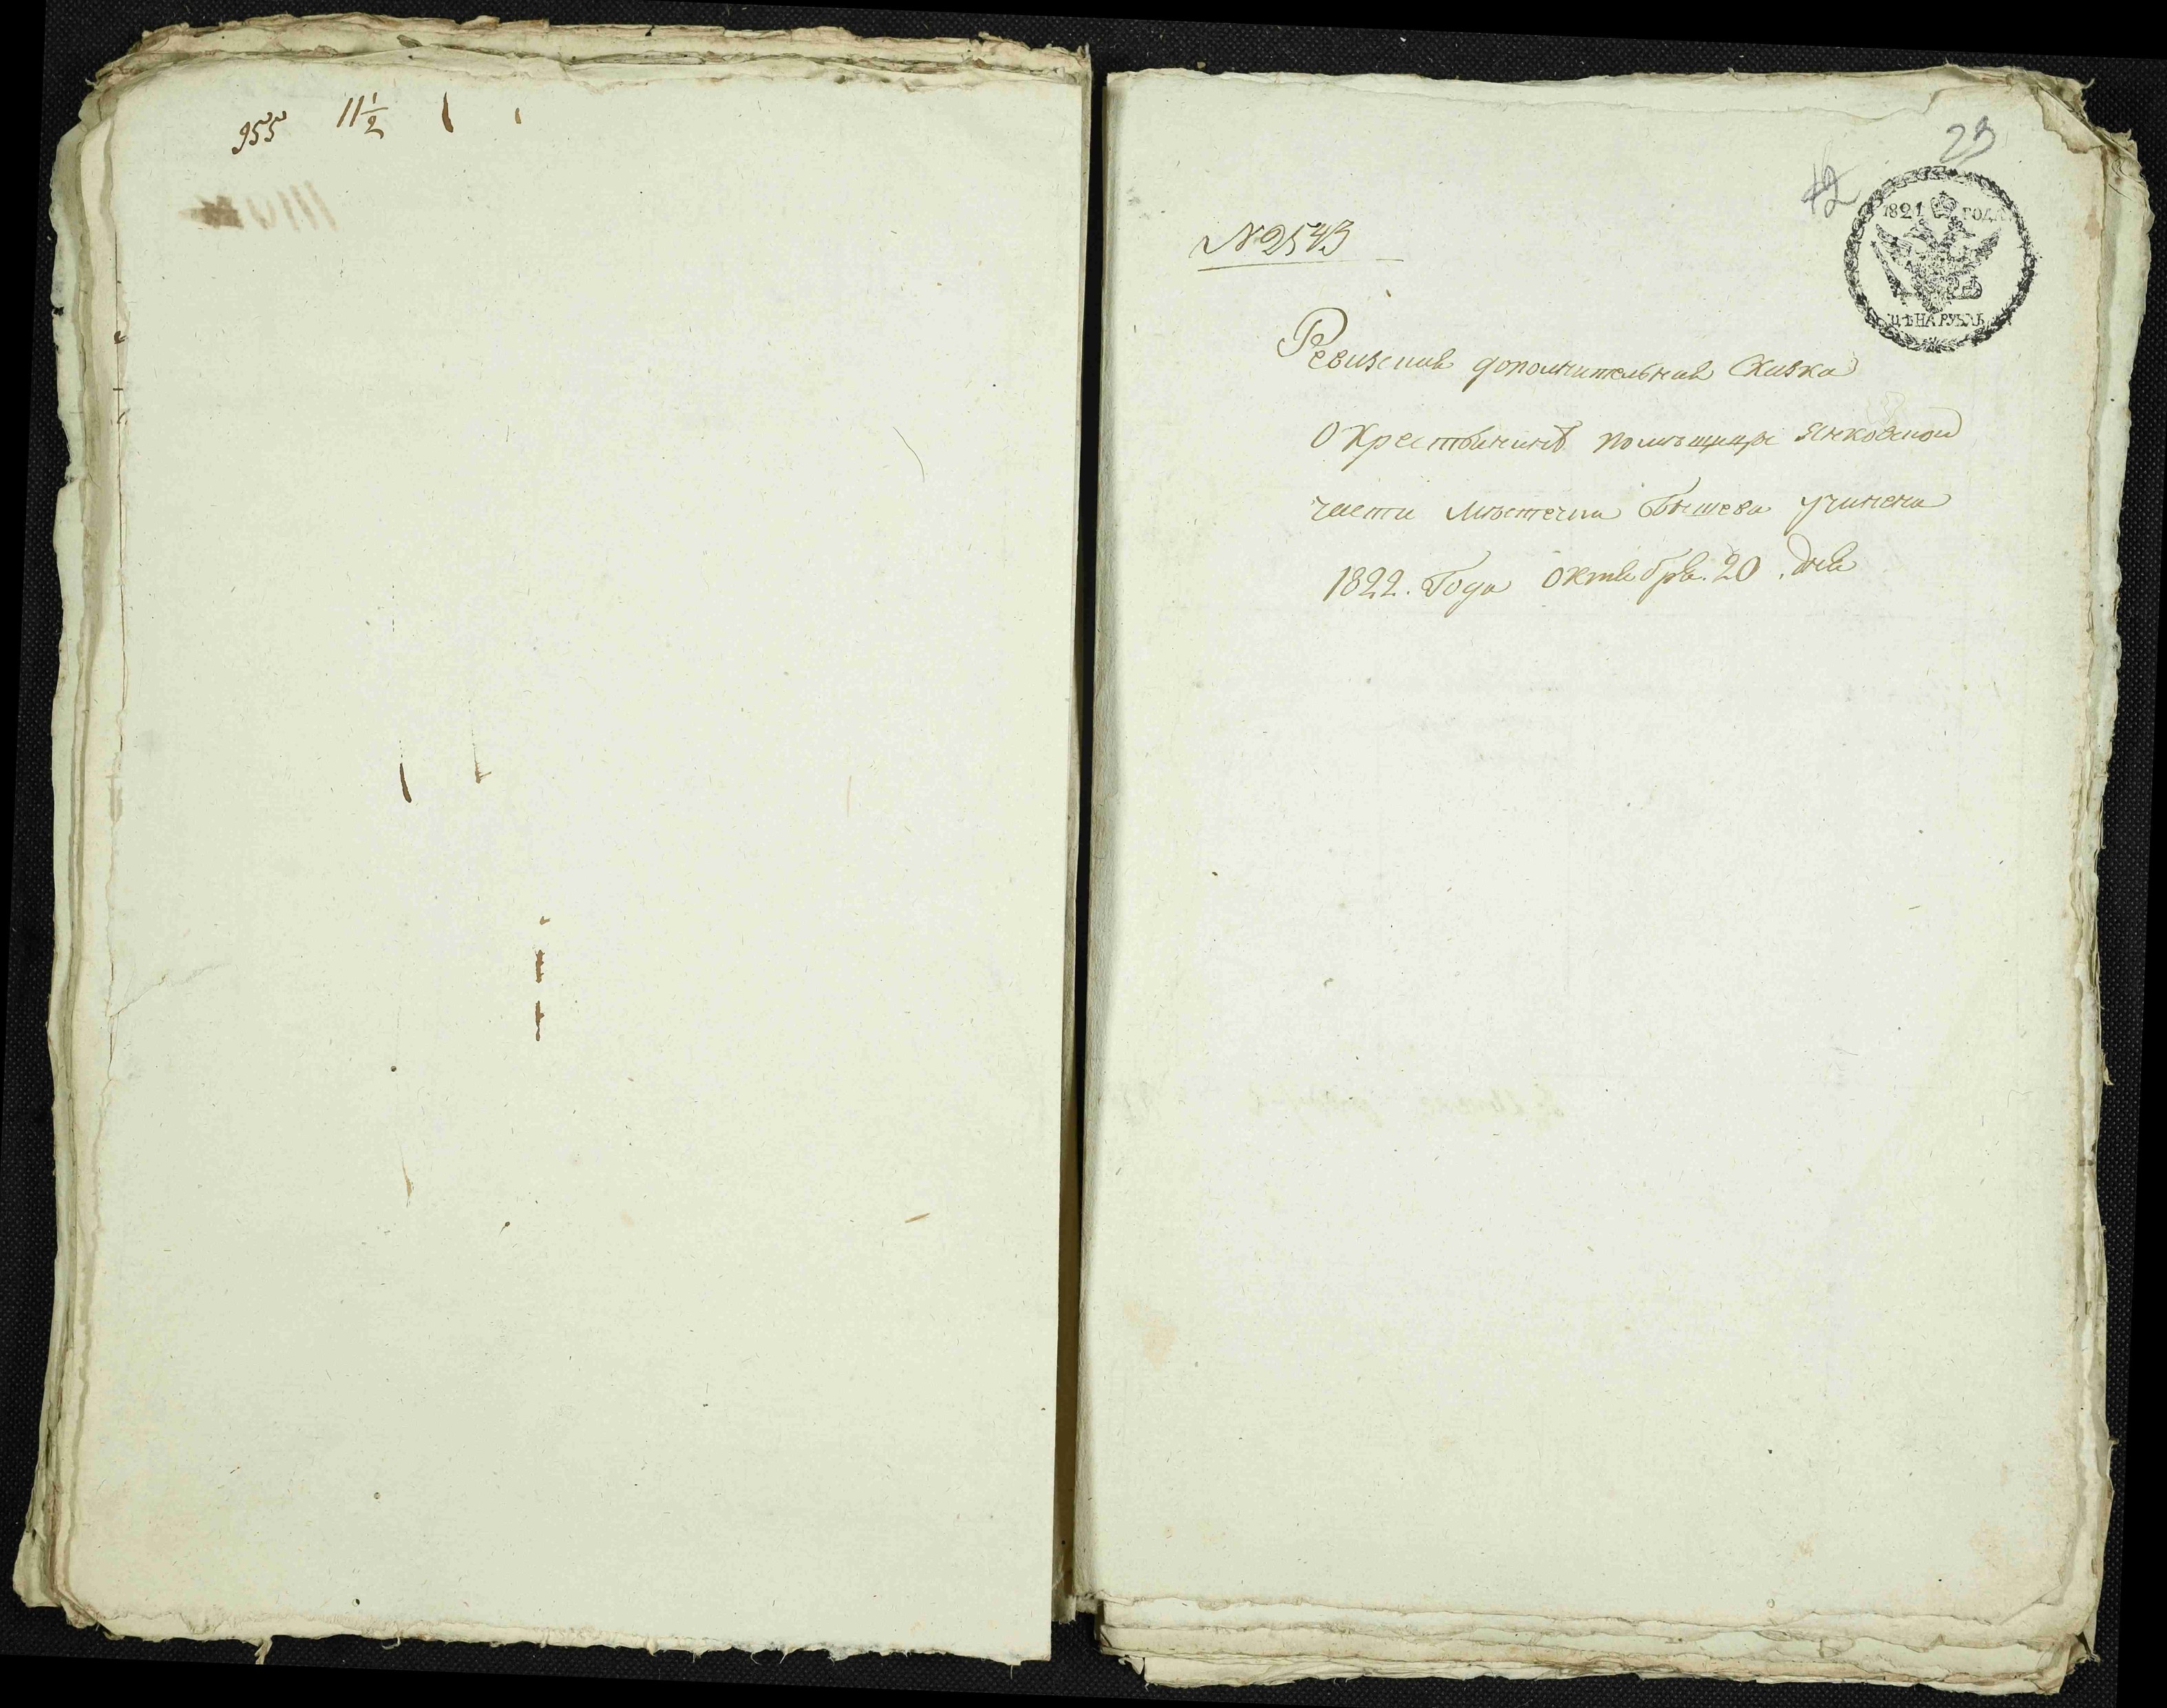 955 11 1/2
23
12
1821 ГОДА
ЦѢНА РУБЛЬ
№ 2543
Ревизская дополнительная Сказка
О Крестьянинѣ помѣщицы Янковской
части мѣстечка Бышева учинена
1822. Года Октября. 20. дня